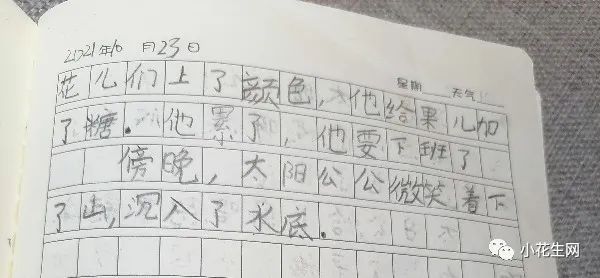 2021年10月23日
星期 天气
花儿们上了颜色，他给果儿加
了糖．他累了，他要下班了
傍晚，太阳公公微笑着下
了山，沉入了水底．
小花生网